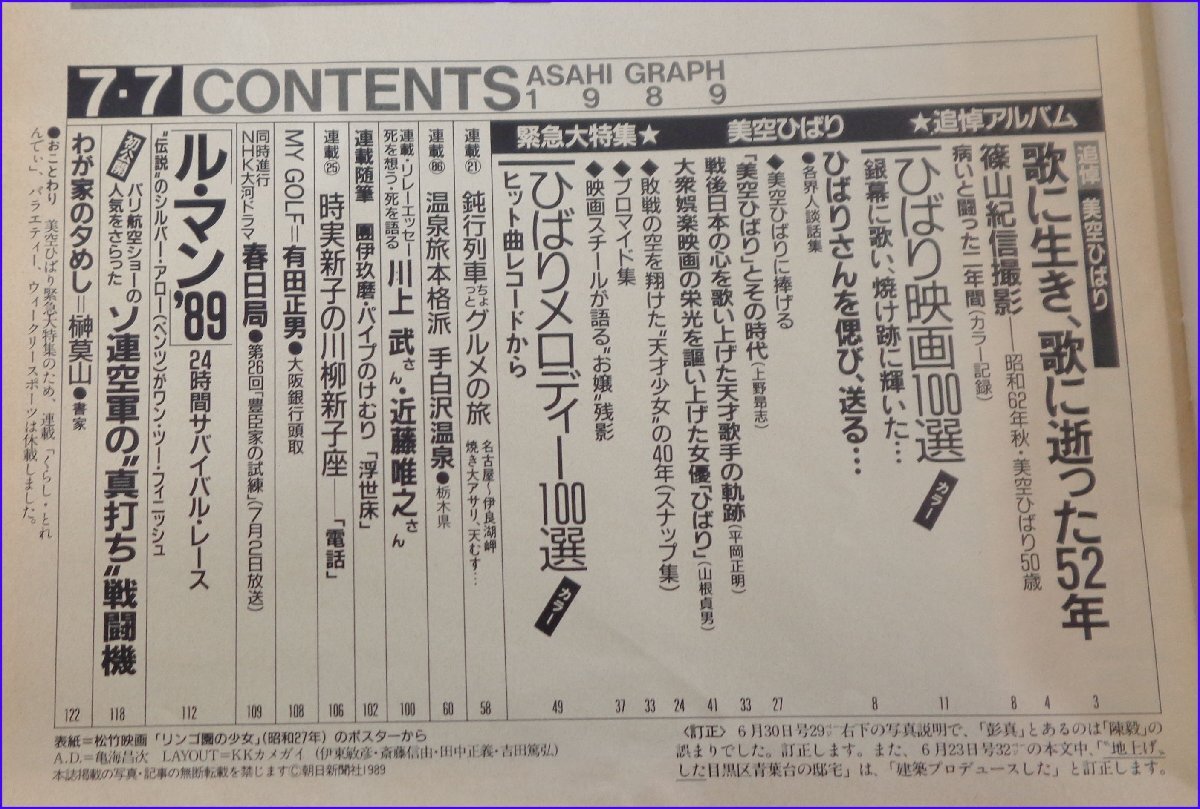 7・7 CONTENTS ASAHI GRAPH 1989
★追悼アルバム 美空ひばり 緊急大特集★
追悼 美空ひばり
歌に生き、歌に逝った52年 3
篠山紀信撮影——昭和62年秋・美空ひばり50歳 4
病いと闘った二年間(カラー記録) 8
ひばり映画100選 カラー 11
銀幕に歌い、焼け跡に輝いた… 8
ひばりさんを偲び、送る…
●各界人談話集
◆美空ひばりに捧げる 27
「美空ひばり」とその時代(上野昂志) 33
戦後日本の心を歌い上げた天才歌手の軌跡(平岡正明) 41
大衆娯楽映画の栄光を謳い上げた女優「ひばり」(山根貞男) 24
◆敗戦の空を翔けた“天才少女”の40年(スナップ集) 33
◆ブロマイド集
◆映画スチールが語る“お嬢”残影 37
ひばりメロディー100選 カラー 49
ヒット曲レコードから
連載㉑ 鈍行列車ちょっとグルメの旅 名古屋〜伊良湖岬 焼き大アサリ、天むす… 58
連載㊻ 温泉旅本格派 手白沢温泉●栃木県 60
連載・リレーエッセー 死を想う・死を語る 川上 武さん・近藤唯之さん 100
連載随筆 團伊玖磨・パイプのけむり「浮世床」 102
連載㉕ 時実新子の川柳新子座——「電話」 106
MY GOLF=有田正男●大阪銀行頭取 108
同時進行 NHK大河ドラマ 春日局●第26回「豊臣家の試練」(7月2日放送) 109
ル・マン’89 24時間サバイバル・レース 112
“伝説”のシルバー・アロー(ベンツ)がワン・ツー・フィニッシュ
初公開 パリ航空ショーの人気をさらった ソ連空軍の“真打ち”戦闘機 118
わが家の夕めし=榊莫山●書家 122
●おことわり 美空ひばり緊急大特集のため、連載「くらし・とれ
んでぃ」、バラエティー、ウィークリースポーツは休載しました。
表紙=松竹映画「リンゴ園の少女」(昭和27年)のポスターから
A.D.=亀海昌次 LAYOUT=KKカメガイ(伊東敏彦・斎藤信由・田中正義・吉田篤弘)
本誌掲載の写真・記事の無断転載を禁じます©朝日新聞社1989
〈訂正〉6月30日号29ページ右下の写真説明で、「彭真」とあるのは「陳毅」の
誤まりでした。訂正します。また、6月23日号32ページの本文中、「“地上げ”
した目黒区青葉台の邸宅」は、「建築プロデュースした」と訂正します。